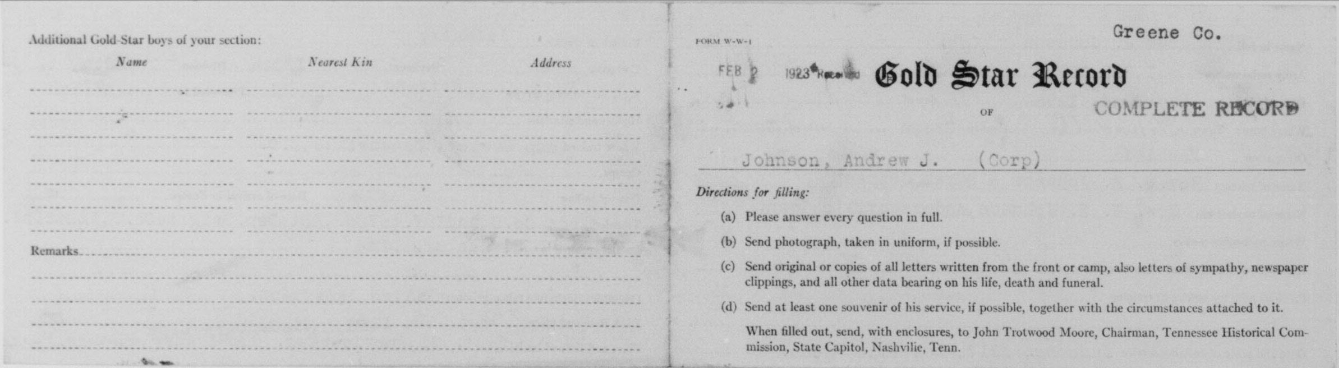 Additional Gold Star boys of your section:
Name Nearest Kin Address
Remarks
Greene Co.
FORM W-W-1
FEB 2 1923 Received Gold Star Record
OF COMPLETE RECORD
Johnson, Andrew J. (Corp)
Directions for filling:
(a) Please answer every question in full.
(b) Send photograph, taken in uniform, if possible.
(c) Send original or copies of all letters written from the front or camp, also letters of sympathy, newspaper
clippings, and all other data bearing on his life, death and funeral.
(d) Send at least one souvenir of his service, if possible, together with the circumstances attached to it.
When filled out, send, with enclosures, to John Trotwood Moore, Chairman, Tennessee Historical Com-
mission, State Capitol, Nashville, Tenn.